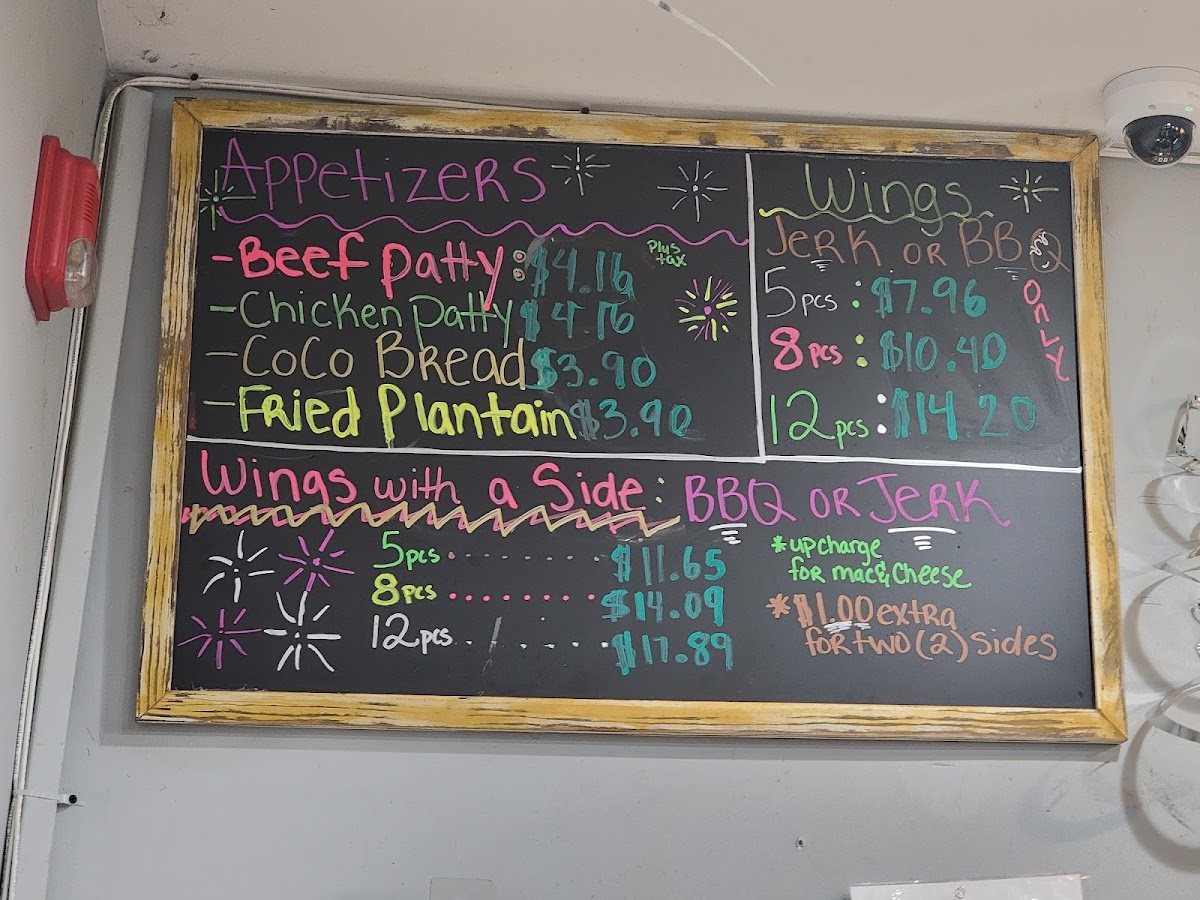 Appetizers
-Beef patty: $4.16
Plus tax
-Chicken patty $4.16
-CoCo Bread $3.90
-Fried Plantain $3.90
Wings
Jerk or BBQ
ONLY
5pcs: $7.96
8pcs: $10.40
12pcs: $14.20
Wings with a Side: BBQ or Jerk
5pcs $11.65
8pcs $14.09
12pcs $17.89
*upcharge
for mac&Cheese
*$1.00 extra
for two (2) sides